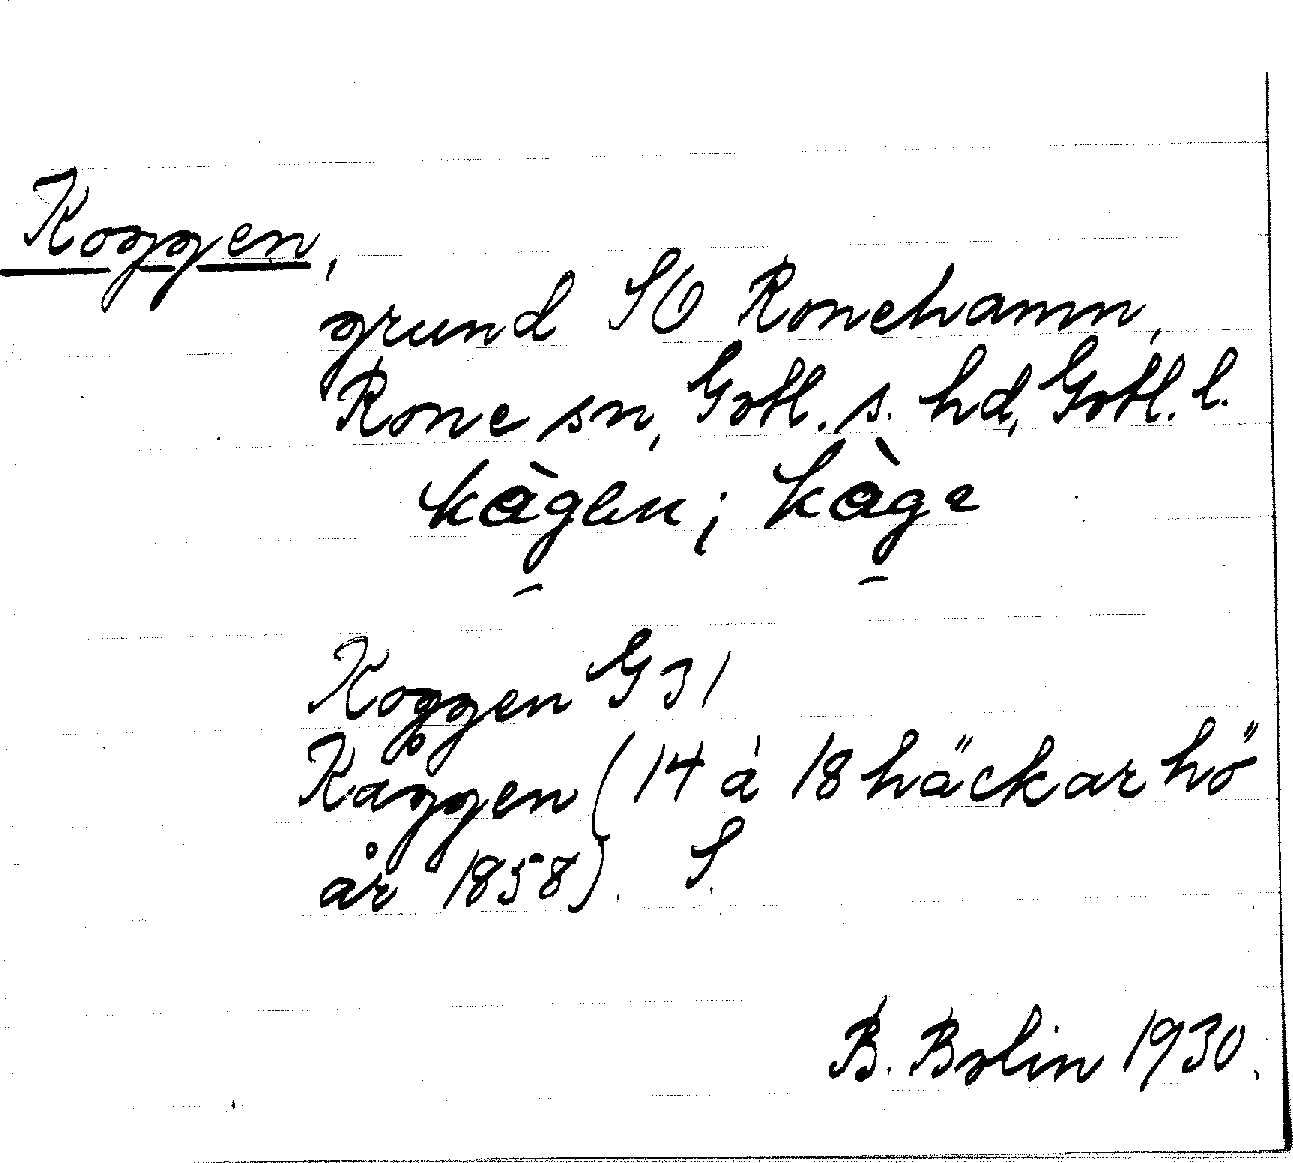 Koggen,
grund SO Ronehamn,
Rone sn, Gotl. s. hd, Gotl. l.
kàgen; kàge
Koggen G 31
Kåggen (14 à 18 häckar hö
år 1858). S.
B. Bolin 1930.